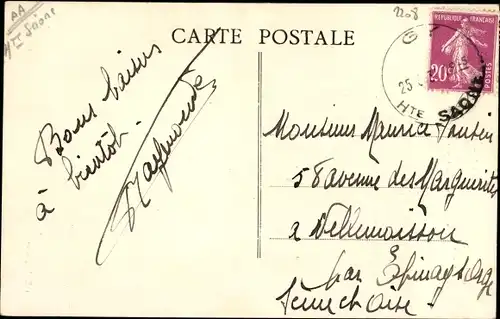 AA
Hte Saone
2208
CARTE POSTALE
REPUBLIQUE FRANÇAISE
20c
POSTES
G
25
HTE SAONE
Bons baisers
à bientôt.
Raymonde
Monsieur Maurice
58 avenue des Marguerites
à Villemoisson
par Epinay s orge
Seine et Oise